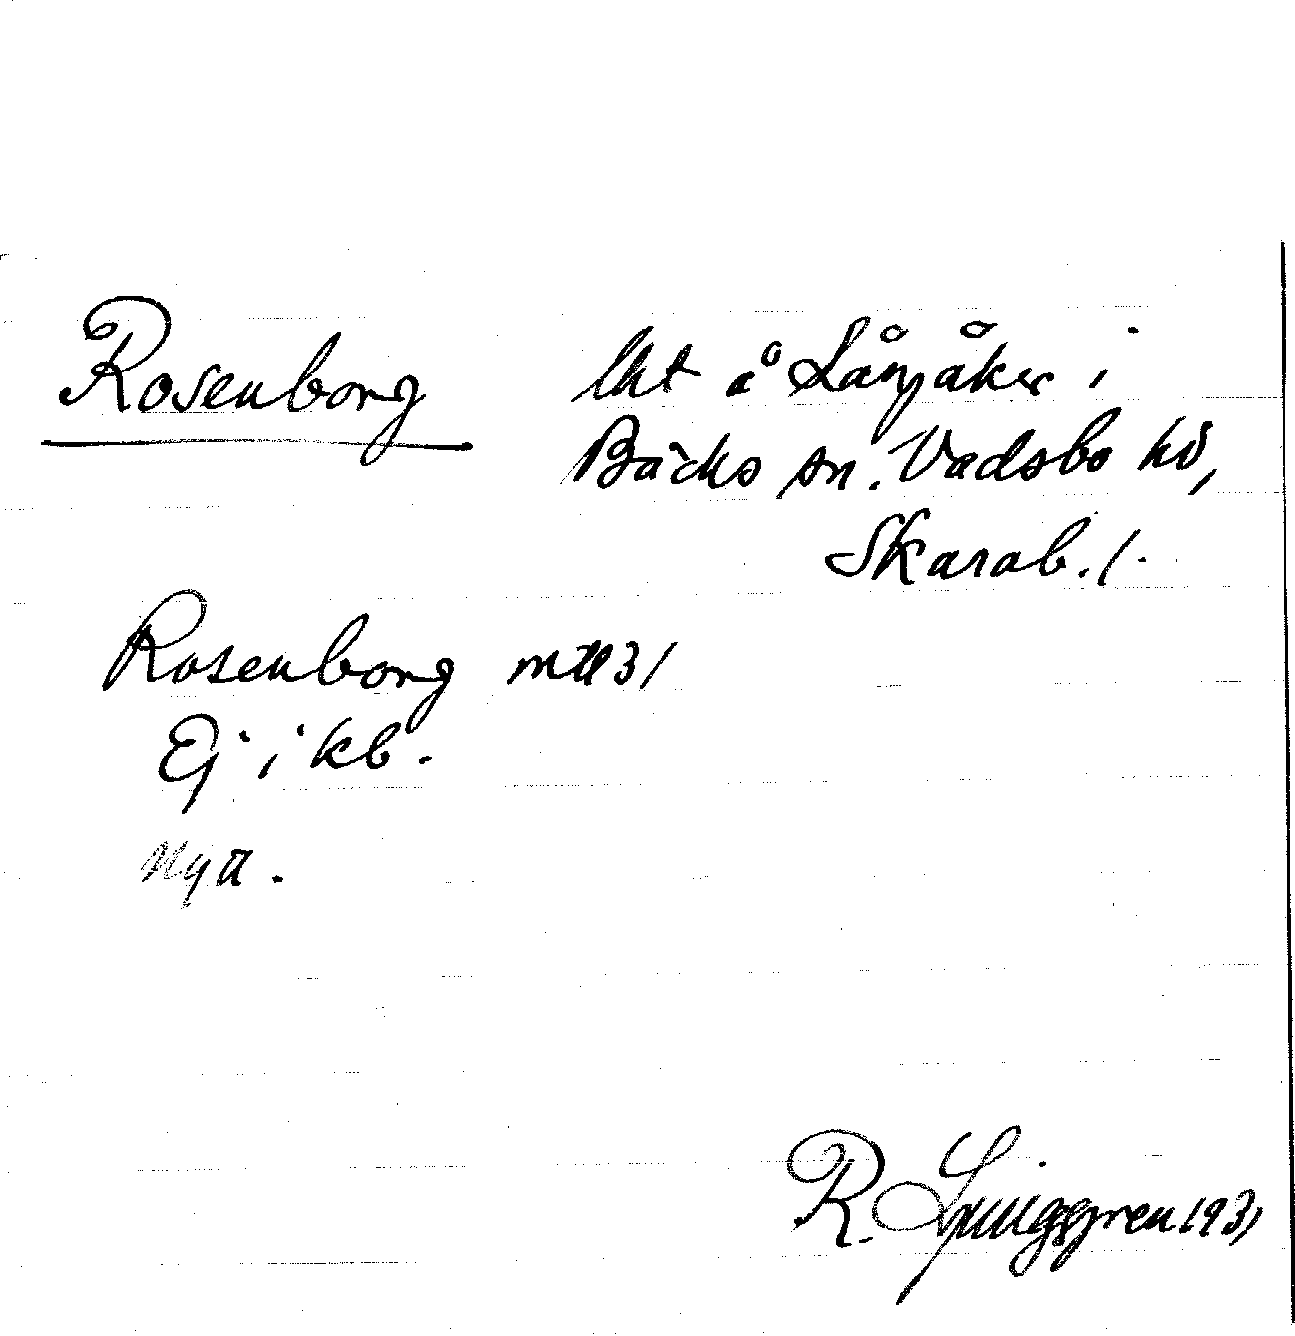 Rosenborg lht å Långåker i
Bäcks sn. Vadsbo hd,
Skarab. l.
Rosenborg mtl 31
Ej i kb.
Nytt.
R. Ljunggren 1931